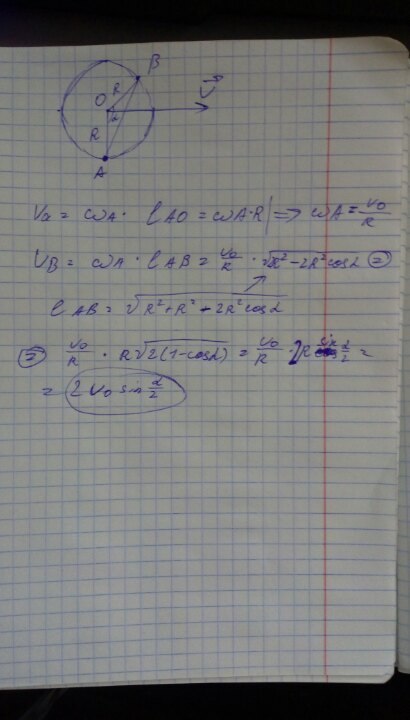 B
R
O
V⃗
α
R
A
Vx = ωA · lAO = ωA·R | => ωA = v₀/R
VB = ωA · lAB = v₀/R · √2R²-2R²cosα =
lAB = √R²+R²-2R²cosα
= v₀/R · R√2(1-cosα) = v₀/R · 2R sin α/2 =
= 2v₀ sin α/2